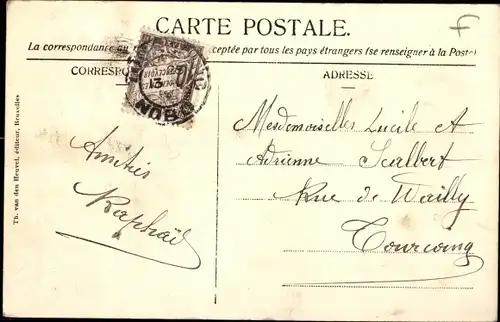 CARTE POSTALE.
La correspondance au acceptée par tous les pays étrangers (se renseigner à la Poste)
CORRESPO
ADRESSE
Th. van den Heuvel, éditeur, Bruxelles
Amitiés
Raphaël
Mesdemoiselles Lucile et
Adrienne Scalbert
Rue de Wailly
Tourcoing
NORD